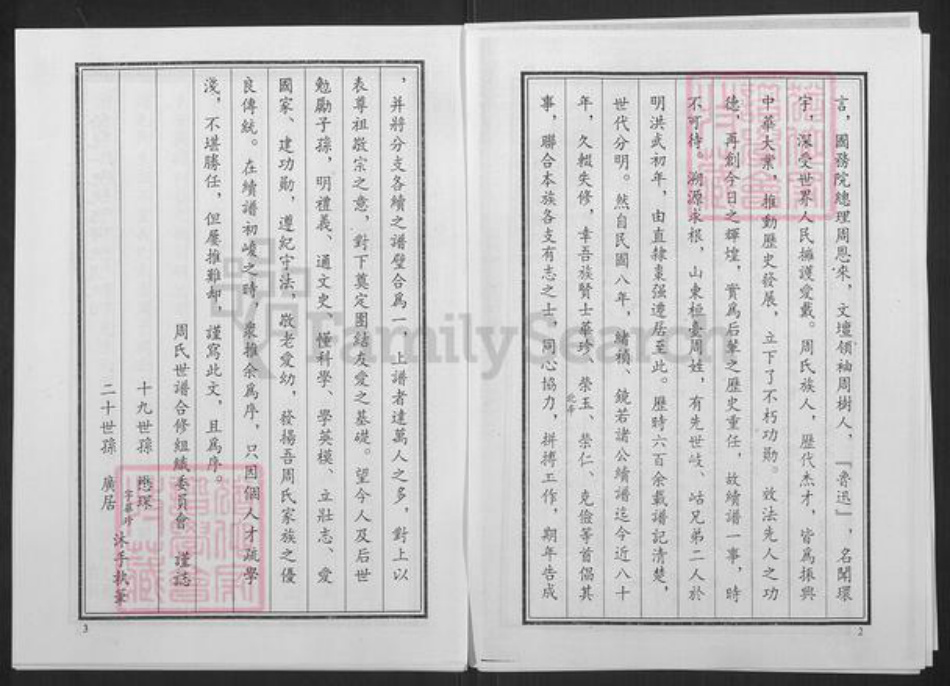 言，國務院總理周恩來，文壇領袖周樹人，『魯迅』，名聞環
宇，深受世界人民擁護愛戴。周氏族人，歷代杰才，皆爲振興
中華大業，推動歷史發展，立下了不朽功勛。效法先人之功
德，再創今日之輝煌，實爲后輩之歷史重任，故續譜一事，時
不可待。溯源求根，山東桓臺周姓，有先世岐、岵兄弟二人於
明洪武初年，由直隸棗强遷居至此。歷時六百余載譜記清楚，
世代分明。然自民國八年，緒禎、鏡若諸公續譜迄今近八十
年，久輟失修，幸吾族賢士華珍、榮玉、榮仁、克儉等首倡其
事，聯合本族各支有志之士，同心協力，拼搏工作，期年告成
2
，并將分支各續之譜璧合爲一，上譜者達萬人之多，對上以
表尊祖敬宗之意，對下奠定團結友愛之基礎。望今人及后世
勉勵子孫，明禮義、通文史、懂科學、學英模、立壯志、愛
國家、建功勛，遵紀守法、敬老愛幼，發揚吾周氏家族之優
良傳統。在續譜初峻之時，衆推余爲序，只因個人才疏學
淺，不堪勝任，但屢推難却　謹寫此文，且爲序。
周氏世譜合修組織委員會　謹誌
十九世孫　懋琛 字華珍
沐手執筆
二十世孫　廣居
3
FamilySearch